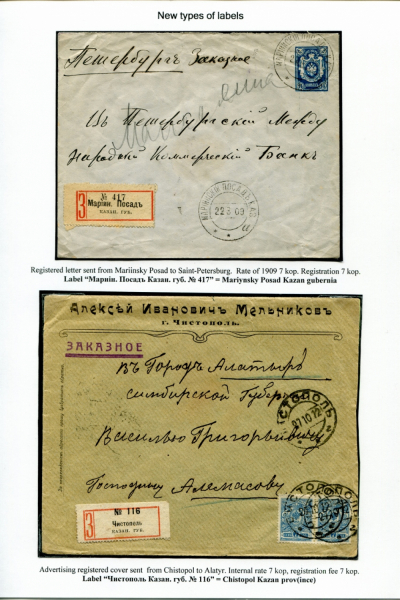 New types of labels
Петербургъ Заказное
МАРІИНСКІЙ ПОСАДЪ
Въ Петербургскій Между
народный Коммерческій Банкъ
№ 417
З Маріин. Посадъ
КАЗАН. ГУБ.
22 3 09
Registered letter sent from Mariinsky Posad to Saint-Petersburg. Rate of 1909 7 kop. Registration 7 kop.
Label “Маріин. Посадъ Казан. губ. № 417” = Mariynsky Posad Kazan gubernia
Алексѣй Ивановичъ Мельниковъ
г. Чистополь.
ЗАКАЗНОЕ
въ Городъ Алатырь
симбирской Губер
Василью Григорьевичу
Господину Алемасову
ЧИСТОПОЛЬ
27 10 12
№ 116
З Чистополь
КАЗАН. ГУБ.
ЧИСТОПОЛЬ
Advertising registered cover sent from Chistopol to Alatyr. Internal rate 7 kop, registration fee 7 kop.
Label “Чистополь Казан. губ. № 116” = Chistopol Kazan prov(ince)